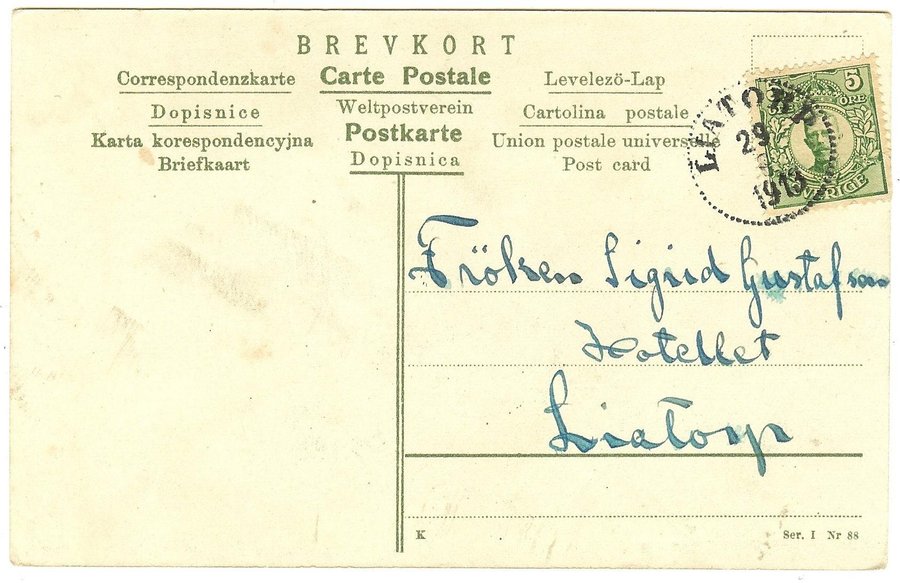 BREVKORT
Correspondenzkarte Carte Postale Levelező-Lap
Dopisnice Weltpostverein Cartolina postale
Karta korespondencyjna Postkarte Union postale universelle
Briefkaart Dopisnica Post card
5
ÖRE
SVERIGE
LIATORP
29
1913
Fröken Sigrid Gustafson
Hotellet
Liatorp
K Ser. I Nr 88